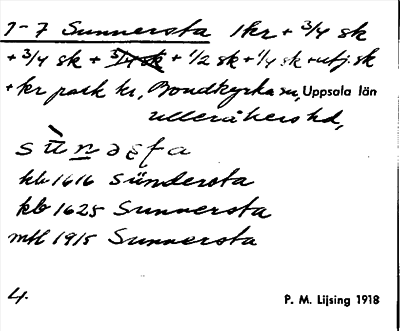 1-7 Sunnersta 1 kr + 3/4 sk
+ 3/4 sk + 3/4 sk + 1/2 sk + 1/4 sk + utj. sk
+ kr park kr, Bondkyrka sn, Uppsala län
Ulleråkers hd,
kb 1616 Sündersta
kb 1625 Sunnersta
mtl 1915 Sunnersta
4. P. M. Lijsing 1918